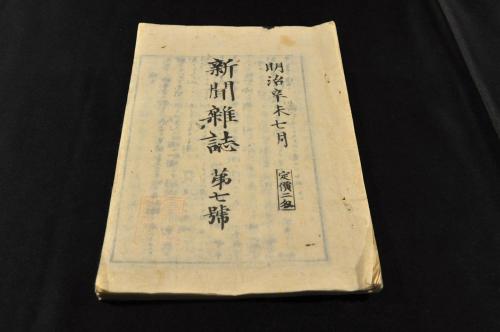 明治辛未七月
定價二匁
新聞雜誌 第七號